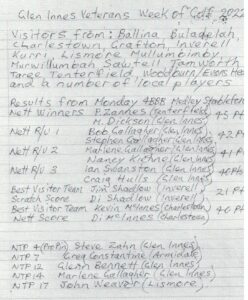 Glen Innes Veterans Week of Golf 2022
Visitors from: Ballina Buladelah,
Charlestown, Grafton, Inverell
Kurri, Lismore Mullumbimby
Murwillumbah Sawtell Tamworth
Taree, Tenterfield, Woodburn/Evans Head
and a number of local players
Results from Monday 4BBB Medley Stableford
Nett Winners P Zannes (Tenterfield) 45 Pts
M. Dickson (Glen Innes)
Nett R/U 1 Bob Gallagher (Glen Innes) 42 Pts
Stephen Gallagher (Glen Innes)
Nett R/U 2 Marlene Gallagher (Glen Innes) 41 Pts
Nancy (Glen Innes)
Nett R/U 3 Ian Swanston (Glen Innes) 40 Pts
Craig Hulls (Glen Innes)
Best Visitor Team Jim Shadlow (Inverell) 21 Pts
Scratch Score Di Shadlow (Inverell)
Best Visitor Team Kevin McInnes (Charlestown) 40 Pts
Nett Score Di McInnes (Charlestown)
NTP 4 (Pro Pin) Steve Zahn (Glen Innes)
NTP 7 Greg Constantine (Armidale)
NTP 12 Glenn Bennett (Glen Innes)
NTP 14 Marlene Gallagher (Glen Innes)
NTP 17 John Weaver (Lismore)